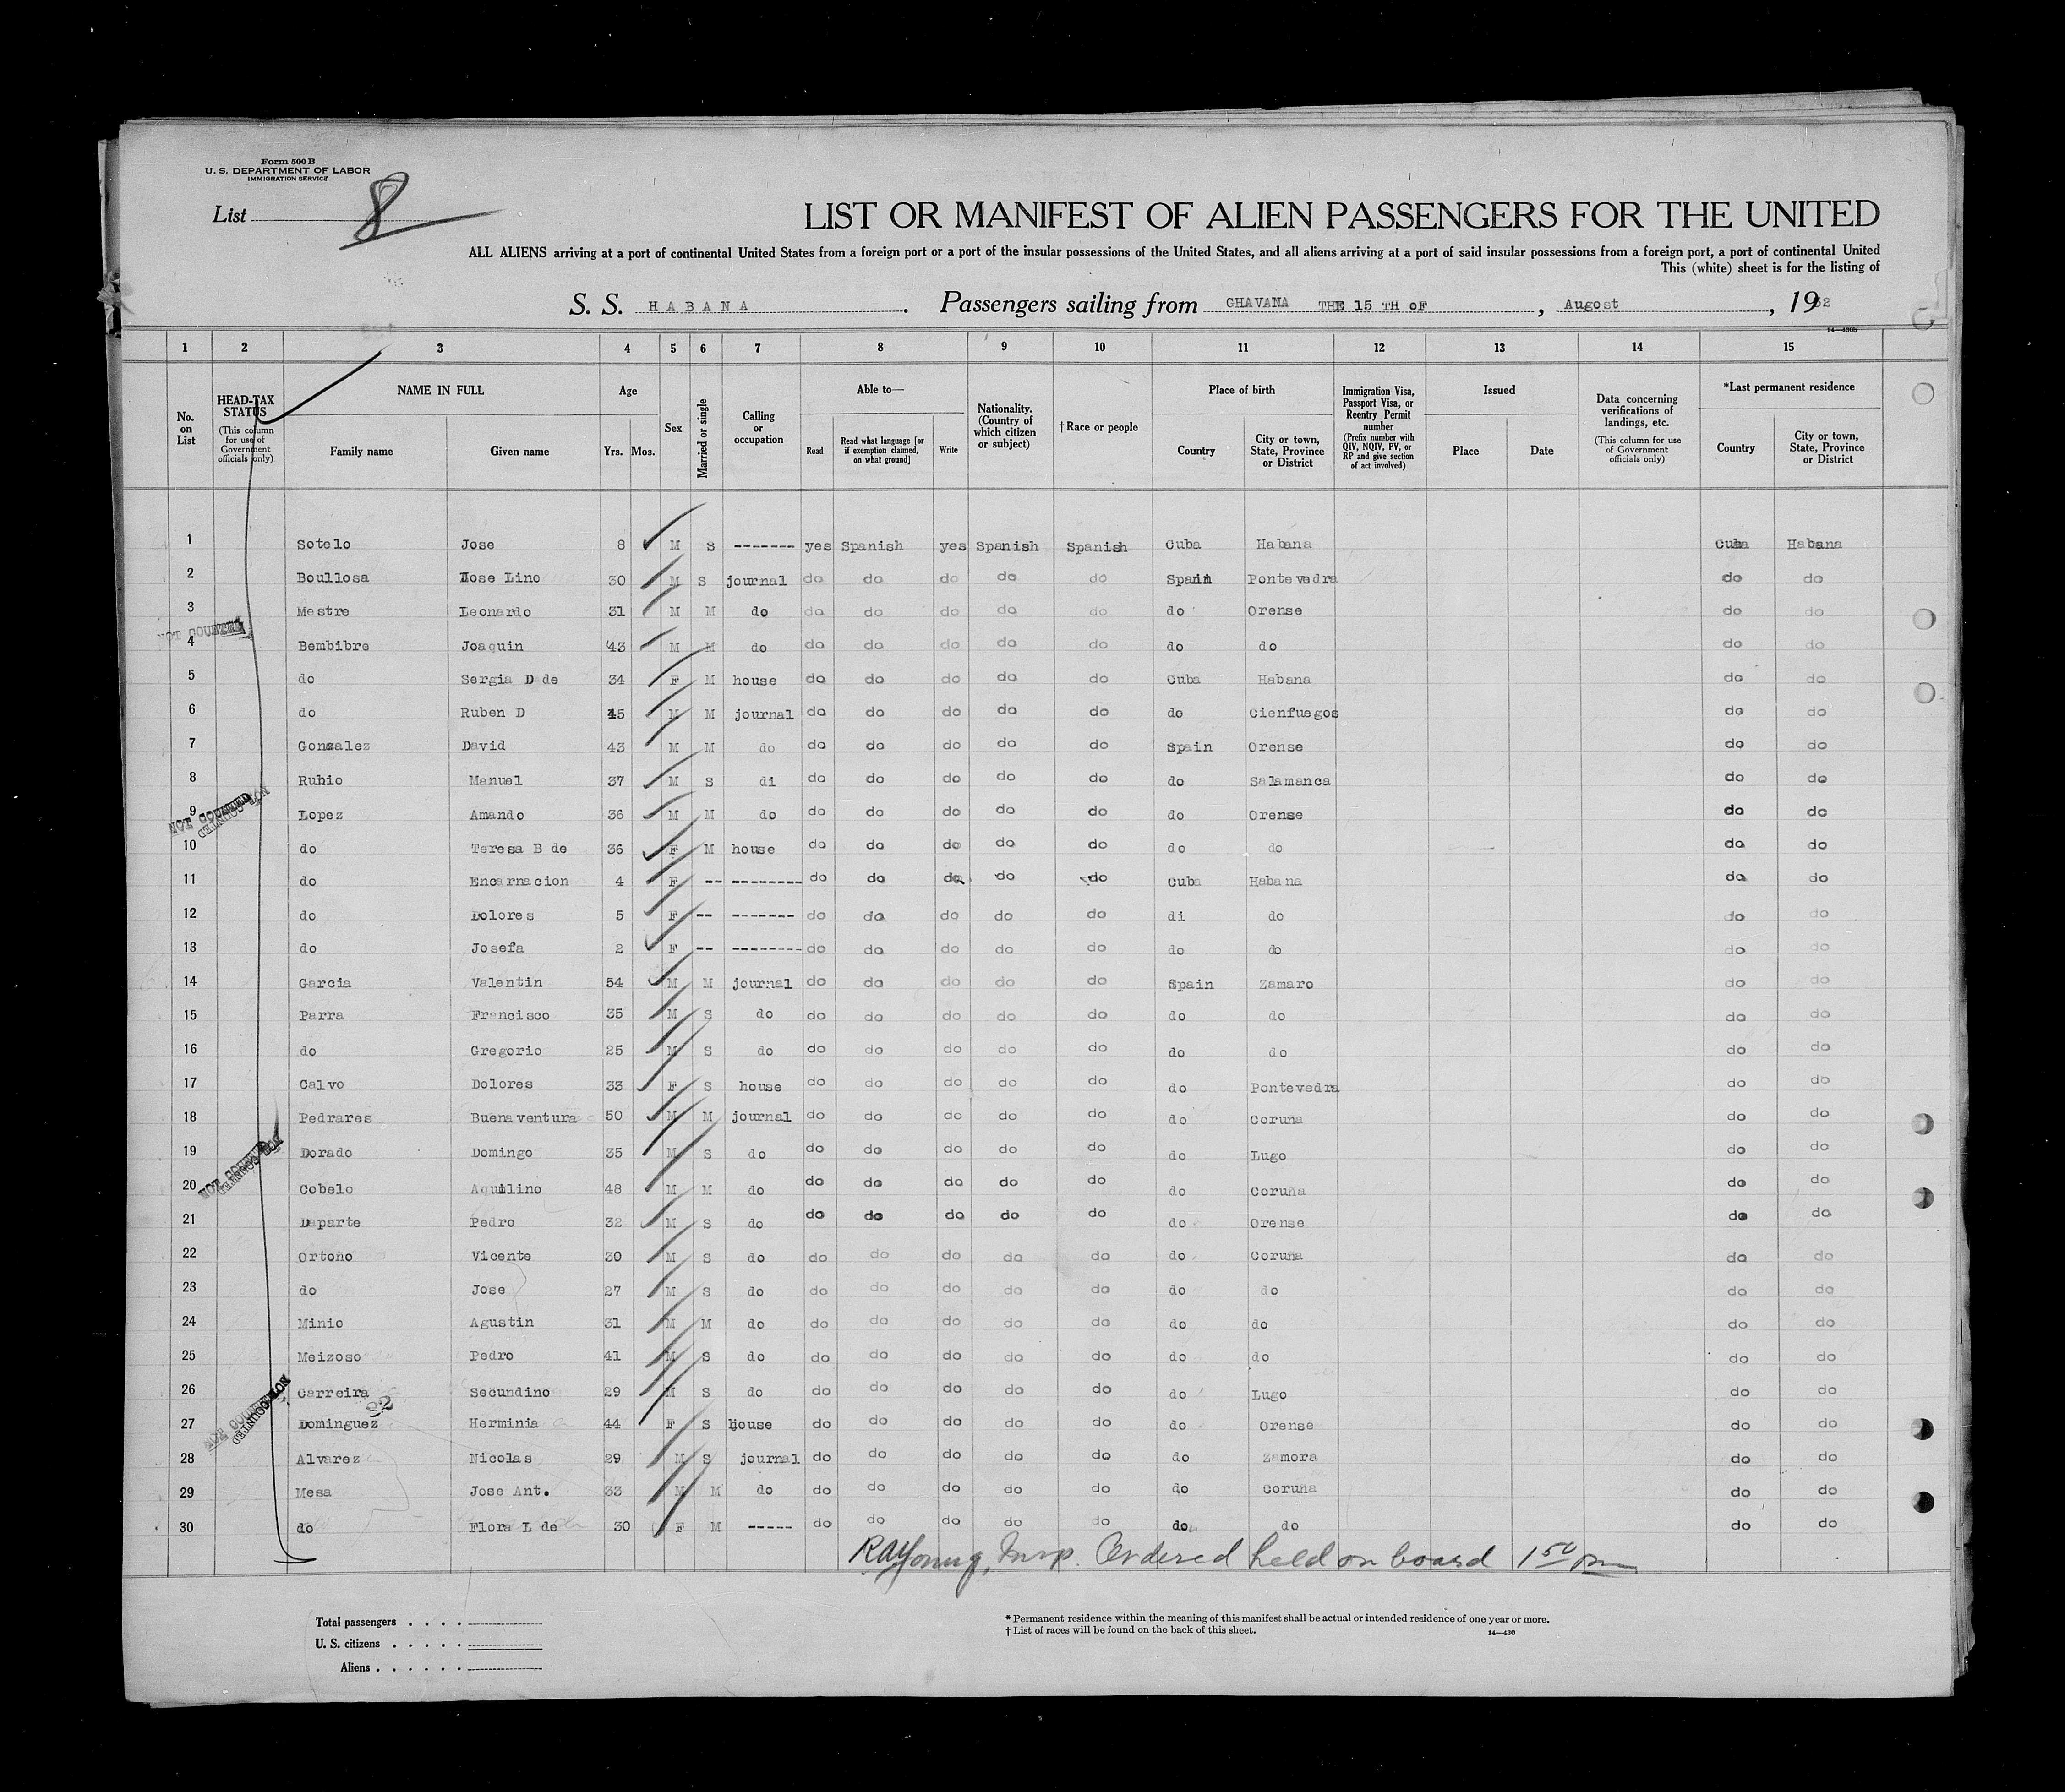 Form 500 B
U. S. DEPARTMENT OF LABOR
IMMIGRATION SERVICE
List 8
LIST OR MANIFEST OF ALIEN PASSENGERS FOR THE UNITED
ALL ALIENS arriving at a port of continental United States from a foreign port or a port of the insular possessions of the United States, and all aliens arriving at a port of said insular possessions from a foreign port, a port of continental United
This (white) sheet is for the listing of
S. S. HABANA. Passengers sailing from GHAVANA THE 15 TH oF, Augost, 1932
14—430b
1 2 3 4 5 6 7 8 9 10 11 12 13 14 15
No. on List
HEAD-TAX STATUS (This column for use of Government officials only)
NAME IN FULL Family name Given name
Age Yrs. Mos.
Sex
Married or single
Calling or occupation
Able to— Read Read what language [or if exemption claimed, on what ground] Write
Nationality. (Country of which citizen or subject)
†Race or people
Place of birth Country City or town, State, Province or District
Immigration Visa, Passport Visa, or Reentry Permit number (Prefix number with QIV, NQIV, PV, or RP and give section of act involved)
Issued Place Date
Data concerning verifications of landings, etc. (This column for use of Government officials only)
*Last permanent residence Country City or town, State, Province or District
1 Sotelo Jose 8 M S ------- yes Spanish yes Spanish Spanish Cuba Habana Cuba Habana
2 Boullosa Jose Lino 30 M S journal do do do do do Spain Pontevedra do do
3 Mestre Leonardo 31 M M do do do do do do do Orense do do
NOT COUNTED
4 Bembibre Joaquin 43 M M do do do do do do do do do do
5 do Sergia D de 34 F M house do do do do do Cuba Habana do do
6 do Ruben D 15 M M journal do do do do do do Cienfuegos do do
7 Gonzalez David 43 M M do do do do do do Spain Orense do do
8 Rubio Manuel 37 M S di do do do do do do Salamanca do do
NOT COUNTED
NOT COUNTED
9 Lopez Amando 36 M M do do do do do do do Orense do do
10 do Teresa B de 36 F M house do do do do do do do do do
11 do Encarnacion 4 F -- -------- do do do do do Cuba Habana do do
12 do Dolores 5 F -- ------- do do do do do di do do do
13 do Josefa 2 F -- -------- do do do do do do do do do
14 Garcia Valentin 54 M M journal do do do do do Spain Zamaro do do
15 Parra Francisco 35 M S do do do do do do do do do do
16 do Gregorio 25 M S do do do do do do do do do do
17 Calvo Dolores 33 F S house do do do do do do Pontevedra do do
18 Pedrares Buenaventura 50 M M journal do do do do do do Coruna do do
19 Dorado Domingo 35 M S do do do do do do do Lugo do do
NOT COUNTED
NOT COUNTED
20 Cobelo Aquilino 48 M M do do do do do do do Coruña do do
21 Daparte Pedro 32 M S do do do do do do do Orense do do
22 Ortoño Vicente 30 M S do do do do do do do Coruna do do
23 do Jose 27 M S do do do do do do do do do do
24 Minio Agustin 31 M M do do do do do do do do do do
25 Meizoso Pedro 41 M S do do do do do do do do do do
26 Carreira Secundino 29 M S do do do do do do do Lugo do do
NOT COUNTED
NOT COUNTED
27 Dominguez Herminia 44 F S house do do do do do do Orense do do
28 Alvarez Nicolas 29 M S journal do do do do do do Zamora do do
29 Mesa Jose Ant. 33 M M do do do do do do do Coruna do do
30 do Flora L de 30 F M ----- do do do do do do do do do
RAYoung, Insp. Ordered held on board 1 50 pm
Total passengers
U. S. citizens
Aliens
* Permanent residence within the meaning of this manifest shall be actual or intended residence of one year or more.
† List of races will be found on the back of this sheet. 14—430